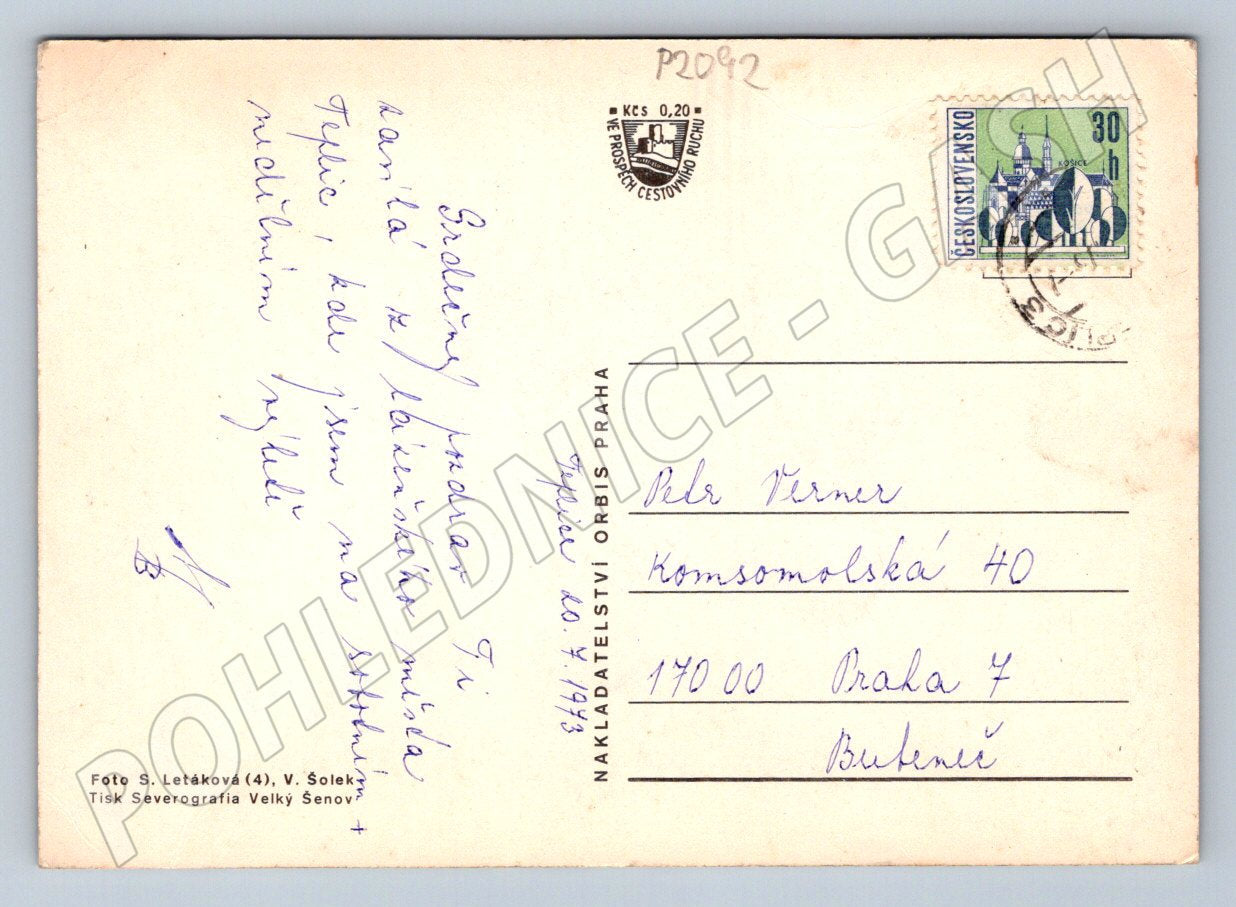 P2092
Kčs 0,20
VE PROSPĚCH CESTOVNÍHO RUCHU
ČESKOSLOVENSKO
30
h
KOŠICE
Teplice 20. 7. 1973
Srdečný pozdrav Ti
z lázeňského města
Teplic, kde jsem na sobotním +
nedělním
NAKLADATELSTVÍ ORBIS PRAHA
Petr Verner
Komsomolská 40
170 00 Praha 7
Bubeneč
Foto S. Letáková (4), V. Šolek
Tisk Severografia Velký Šenov
POHLEDNICE - GASH